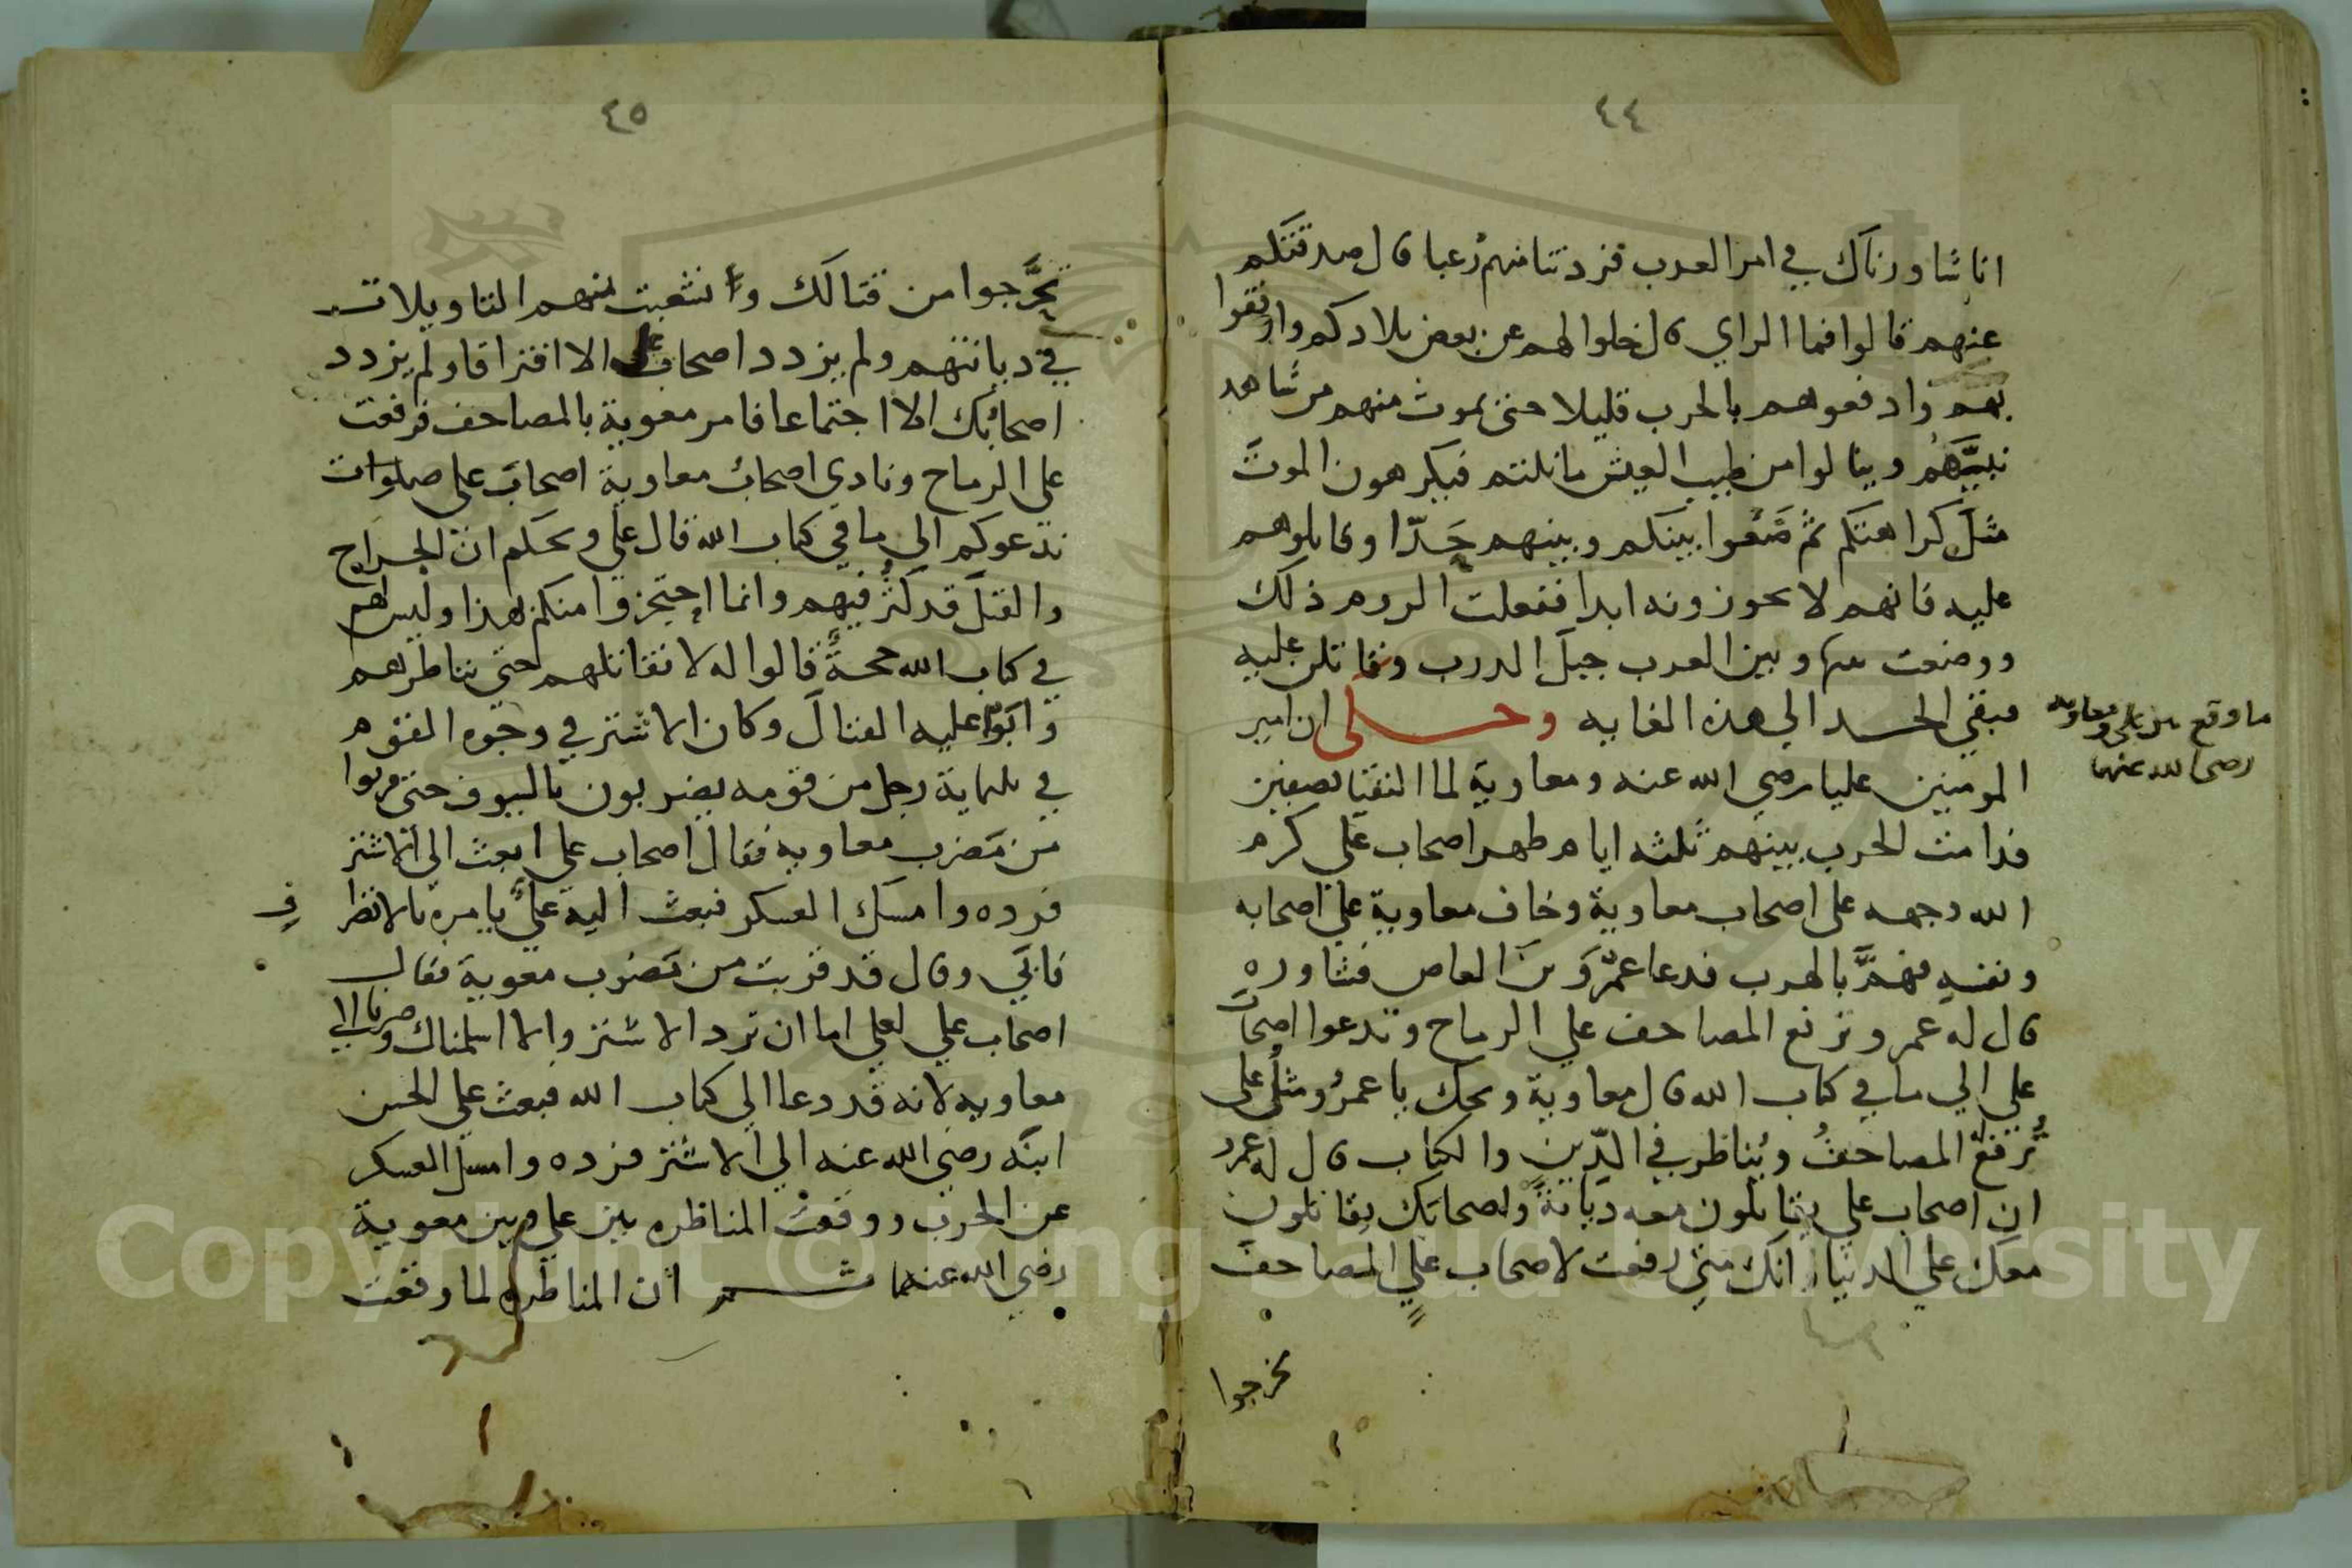 ٤٤
انا شاورناك في امر العرب فزدتنا منهم رعبا قال صدقتكم
عنهم قالوا فما الراي قال خلوا لهم عن بعض بلادكم وارفقوا
بهم وادفعوهم بالحرب قليلا حتى يموت منهم من شاهد
نبيَّهُم وينالوا من طيب العيش ما نلتم فيكرهون الموتَ
مثلَ كراهتكم ثم ضَعُوا بينكم وبينهم حَدّا وقاتلوهم
عليه فانهم لا يحوزونه ابدا ففعلت الروم ذلك
ووضعت بينها وبين العرب جبلَ الدرب وتقاتلن عليه
فبقي الحد الي هذه الغايه وحكى ان امير
المومنين عليا رضي الله عنه ومعاوية لما التقيا بصفين
فدامت الحرب بينهم ثلثه ايام ظهر اصحاب علي كرم
الله وجهه على اصحاب معاوية وخاف معاوية علي اصحابه
ونفسه فهمَّ بالهرب فدعا عمرَو بن العاص فشاوره
قال له عمرو ترفع المصاحف علي الرماح وتدعوا اصحابَ
علي الي ما في كتاب الله قال معاوية ويحك يا عمرُو مثلُ علي
تُرفعُ له المصاحفُ ويُناظر في الدّين والكتاب قال له عمرو
ان اصحاب علي يقاتلون معه ديانةً واصحابك يقاتلون
معك علي الدنيا وانك متي رفعت لاصحاب علي المصاحف
تحرجوا
ما وقع بين علي ومعاويه
رضي الله عنهما
٤٥
تحَّرجوا من قتالك وانشعبت منهم التاويلات
في ديانتهم ولم يزدد اصحاب علي الا افتراقا ولم يزدد
اصحابُك الا اجتماعا فامر معوية بالمصاحف فرفعت
على الرماح ونادي اصحابُ معاوية اصحابَ على صلوات
ندعوكم الي ما في كتاب الله قال علي ويحكم ان الجراح
والقتلَ قد كثُر فيهم وانما احتجزوا منكم بهذا وليس لهم
في كتاب الله حجةٌ قالوا له لا نقاتلهم حتي نناظرهم
وابَوْا عليه القتالَ وكان الاشتر في وجوه القوم
في ثلثماية رجل من قومه يضربون بالسيوف حتى قربوا
من مَضرب معاويه فقال اصحاب علي ابعث الي الاشتر
فرده وامسك العسكر فبعث اليه عليٌّ يامره بالانظرا
ف
فابَي وقال قد قربت من مَضرب معوية فقال
اصحاب علي لعلي اما ان ترد الاشتر والا اسلمناك وصرنا الي
معاويه لانه قد دعا الي كتاب الله فبعث علي الحسن
ابنَه رضي الله عنه الي الاشتر فرده وامسك العسكر
عن الحرب ووقعتْ المناظره بين علي وبين معوية
رضي الله عنهما ثم ان المناظره لما وقعت
Copyright © King Saud University